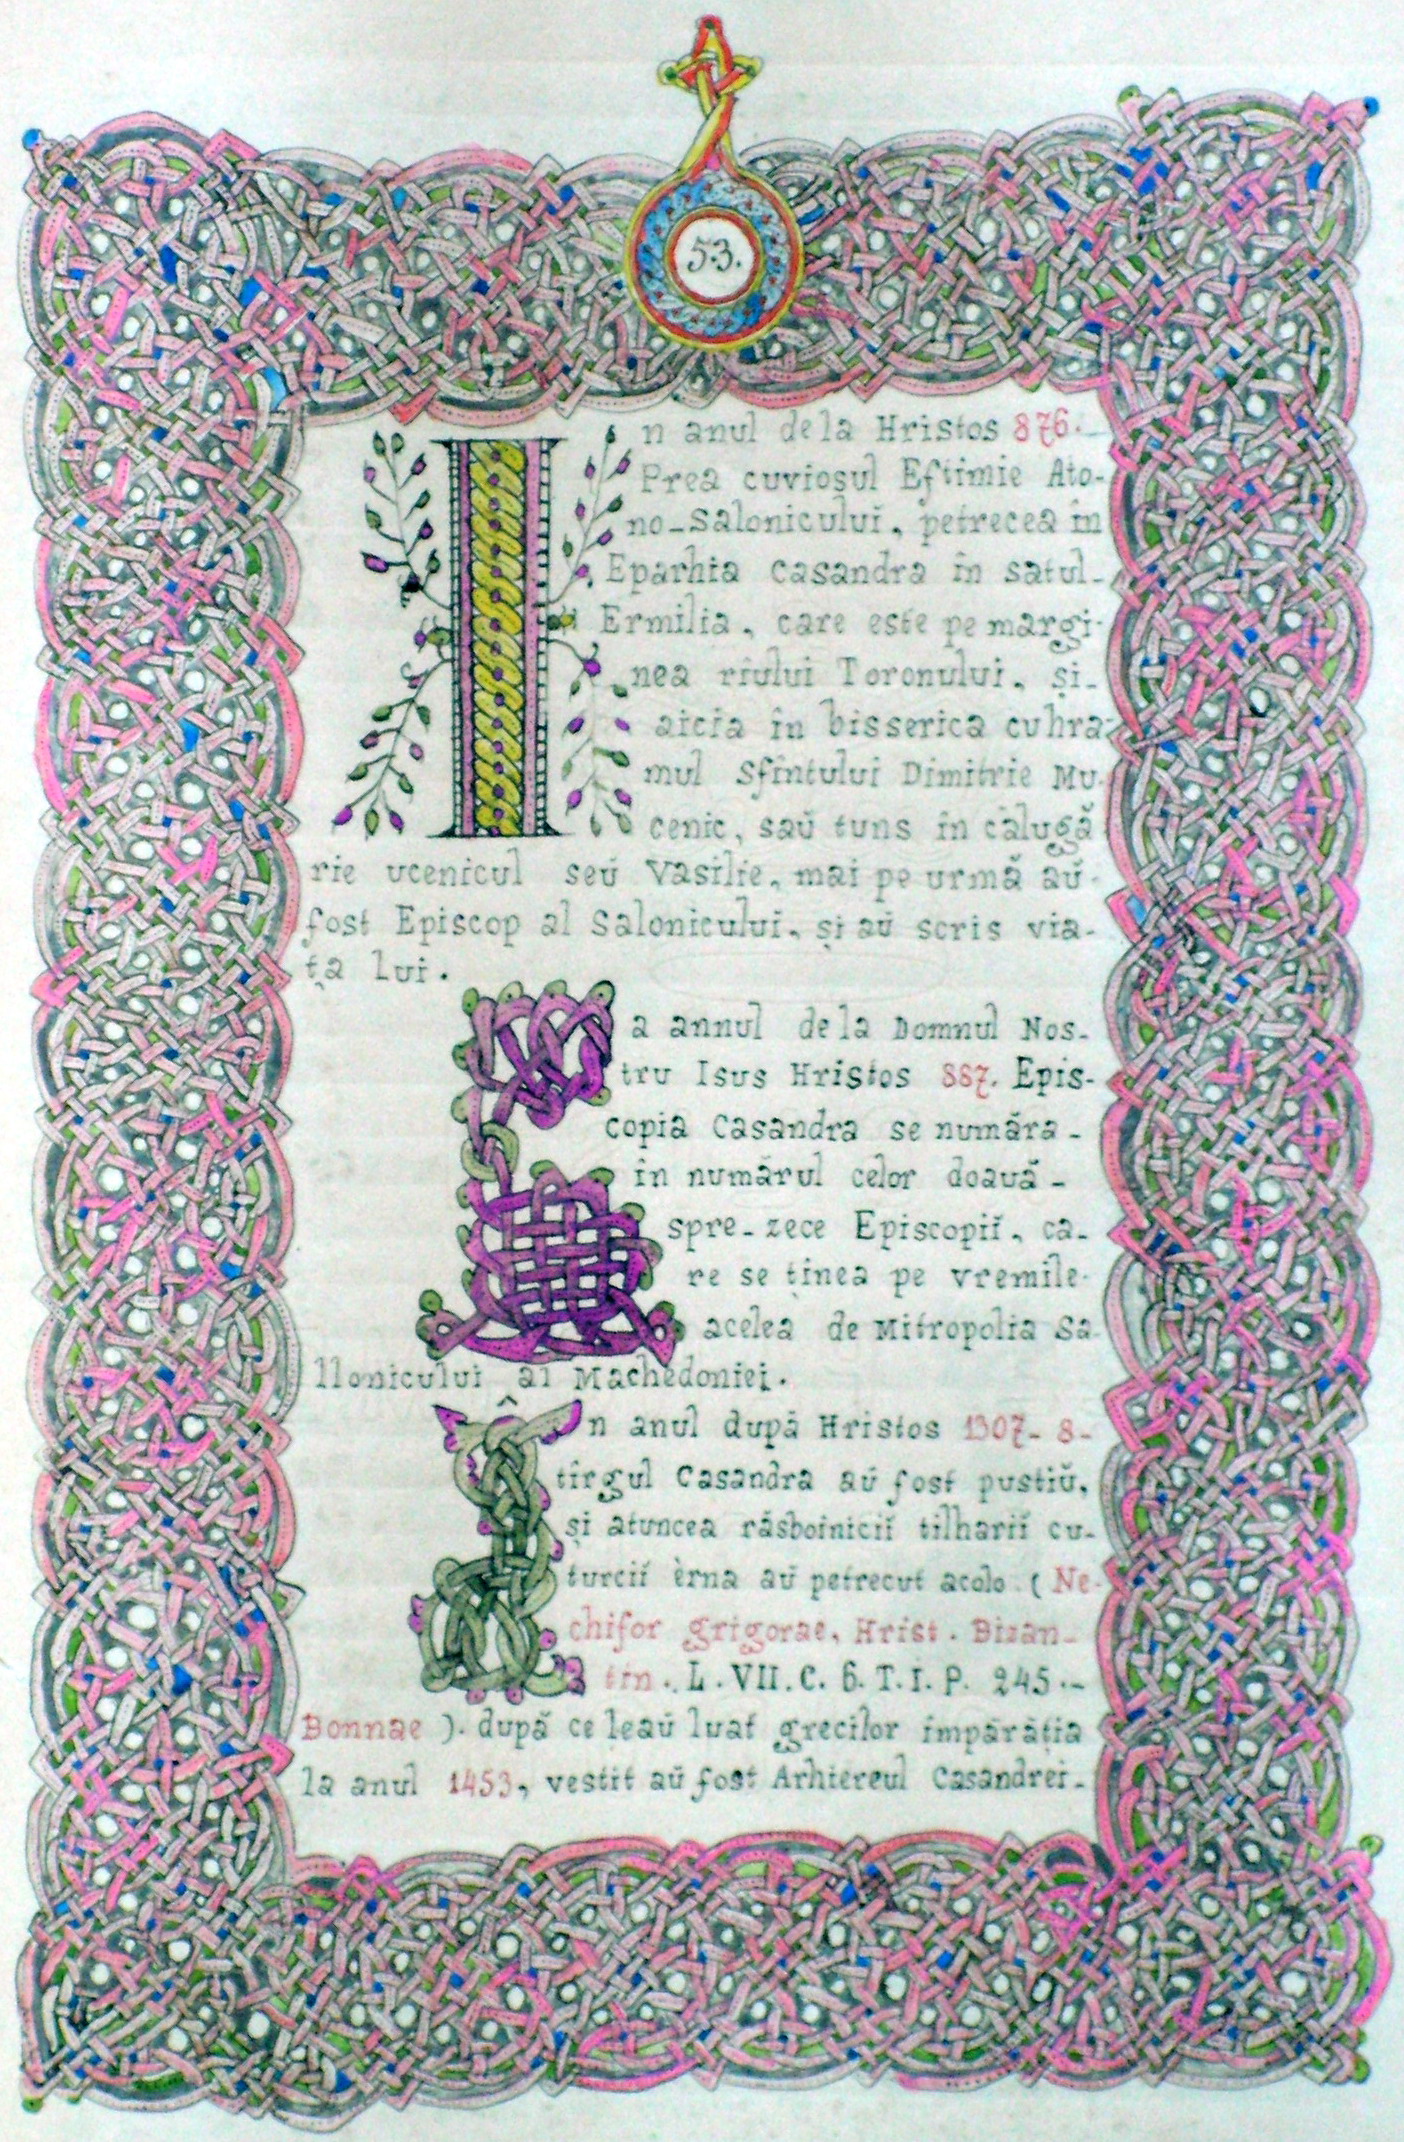 53.
In anul dela Hristos 876.
Prea cuviosul Eftimie Ato-
no-Salonicului, petrecea în
Eparhia Casandra în satul-
Ermilia, care este pe margi-
nea rîului Toronului, și-
aicia în bisserica cuhra-
mul Sfîntului Dimitrie Mu-
cenic, saŭ tuns in călugă
rie ucenicul seŭ Vasilie, mai pe urmă aŭ-
fost Episcop al Salonicului, și aŭ scris via-
ța lui.
La annul dela Domnul Nos-
tru Isus Hristos 887. Epis-
copia Casandra se număra-
în numărul celor doauă-
spre-zece Episcopiĭ, ca-
re se ținea pe vremile-
acelea de Mitropolia Sa-
llonicului al Machedoniei.
În anul după Hristos 1307-8-
tîrgul Casandra aŭ fost pustiŭ,
și atuncea răsboinicii tilharii cu-
turcii èrna aŭ petrecut acolo (Ne-
chifor grigorae, Hrist. Bizan-
tin. L. VII. C. 6. T. I. P. 245.-
Bonnae). după ce leaŭ luat grecilor împărăția
la anul 1453, vestit aŭ fost Arhiereul Casandrei-